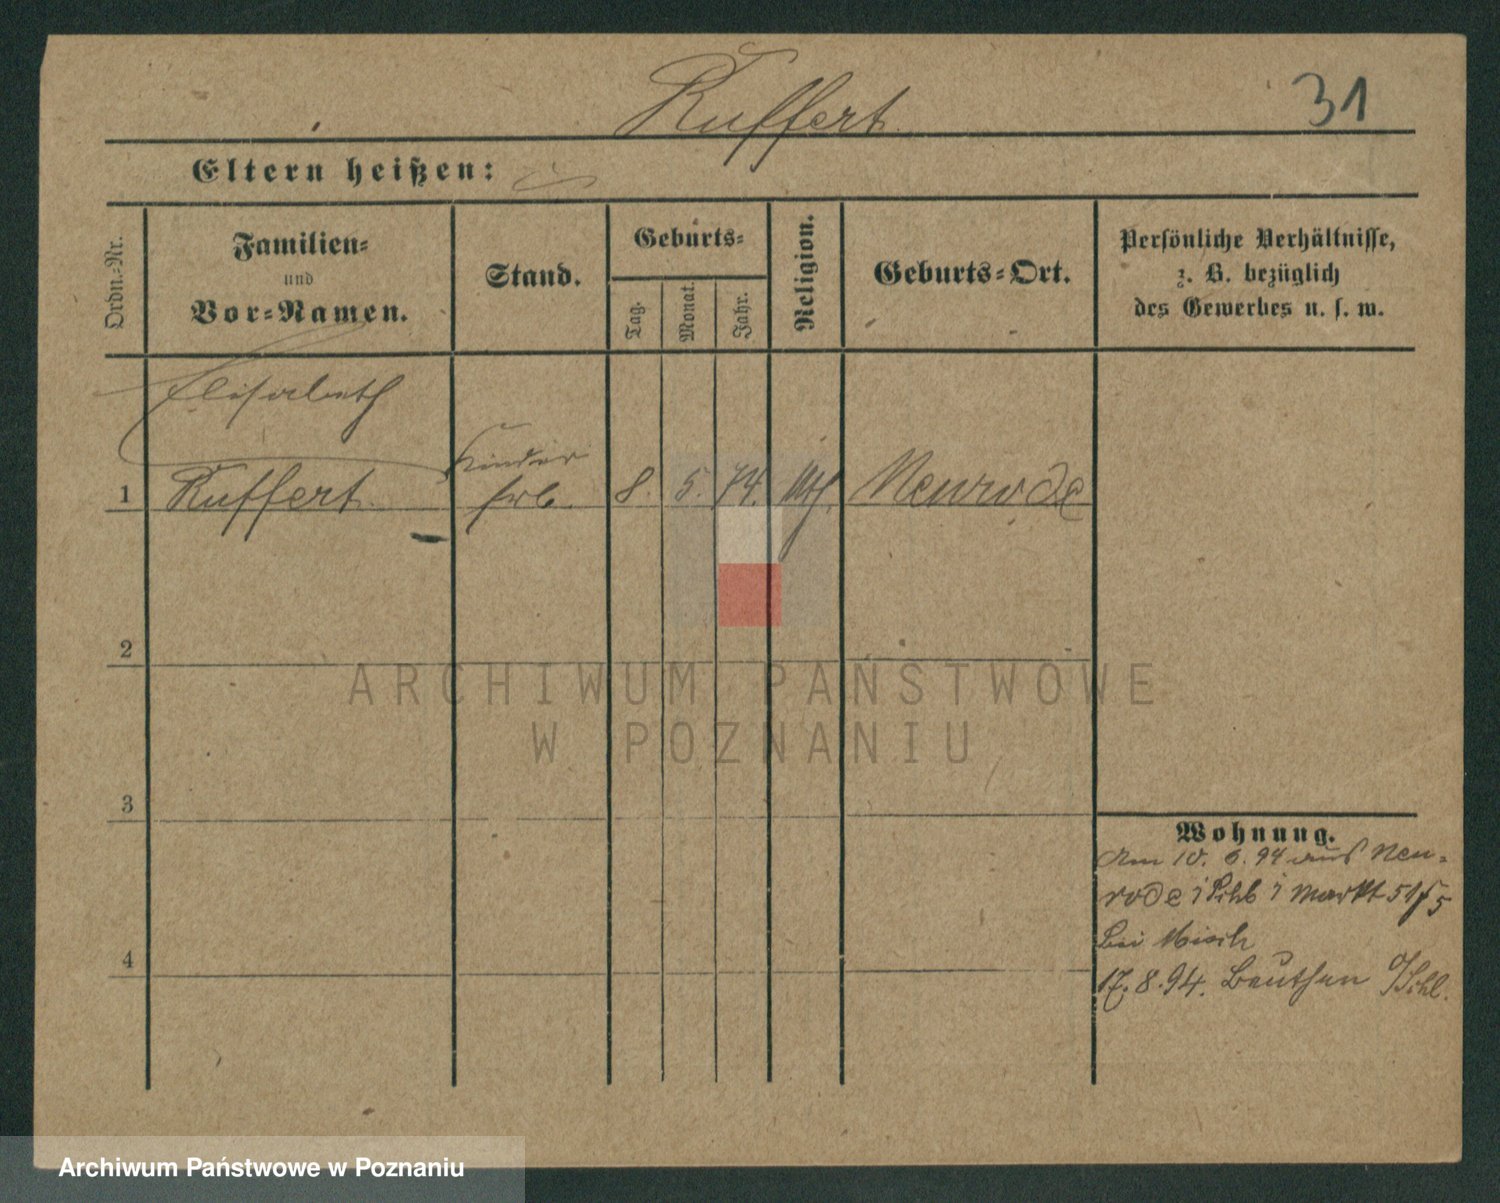 Ruffert
31
Eltern heißen:
Ordn.-Nr.
Familien-
und
Vor-Namen.
Stand.
Geburts-
Tag.
Monat.
Jahr.
Religion.
Geburts-Ort.
Persönliche Verhältnisse,
z. B. bezüglich
des Gewerbes u. s. w.
Elisabeth
Kinder
1 Ruffert. 8. 5. 74. Neurode
2
ARCHIWUM PAŃSTWOWE
W POZNANIU
3
Wohnung.
Am 10. 6. 94 aus Neu-
rode Markt 51
bei
4
17. 8. 94. Beuthen O/Schl.
Archiwum Państwowe w Poznaniu